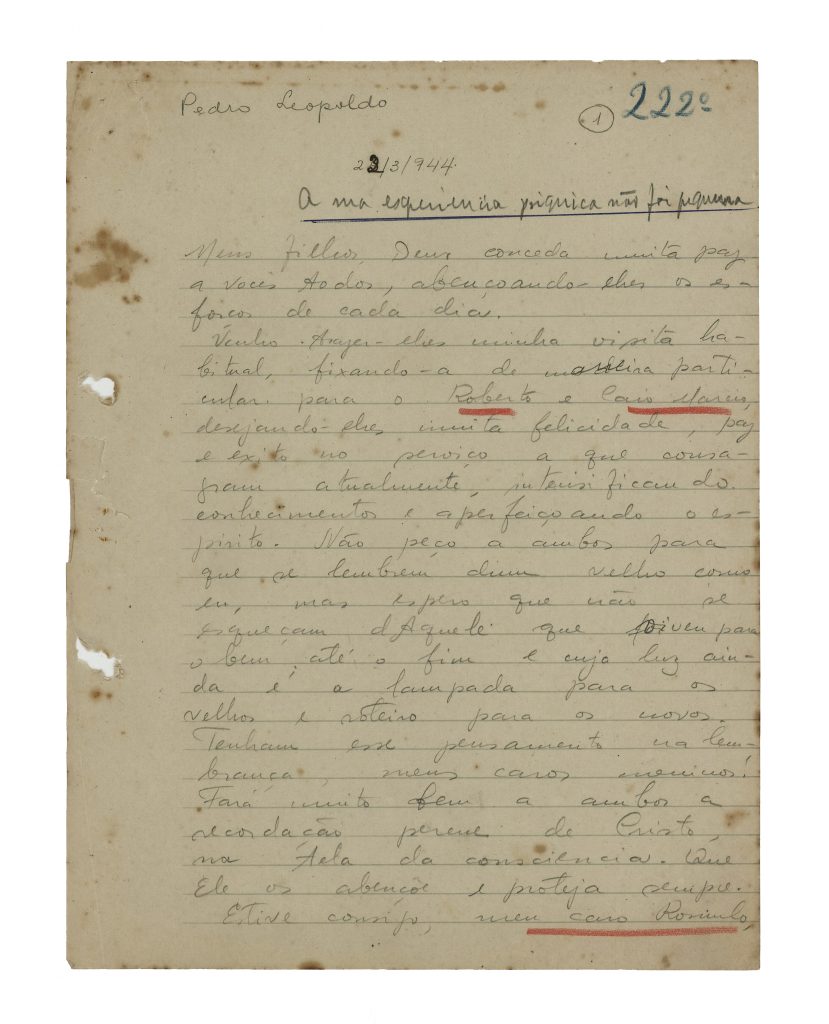 Pedro Leopoldo
1 222º
23/3/944
A ma esperiencia psiquica não foi pequena
Meus filhos, Deus conceda muita paz
a voces todos, abençoando-lhes os es-
forços de cada dia.
Venho trazer-lhes minha visita ha-
bitual, fixando-a de maneira parti-
cular para o Roberto e Caio Marcio,
desejando-lhes muita felicidade, paz
e exito no serviço a que consa-
gram atualmente, intensificando
conhecimentos e aperfeiçoando o es-
pirito. Não peço a ambos para
que se lembrem dum velho como
eu, mas espero que não se
esqueçam dAquele que viveu para
o bem até o fim e cuja luz ain-
da é a lampada para os
velhos e roteiro para os novos.
Tenham esse pensamento na lem-
brança, meus caros meninos!
Fará muito bem a ambos a
recordação perene de Cristo,
na tela da consciencia. Que
Ele os abençôe e proteja sempre.
Estive consigo, meu caro Romulo,